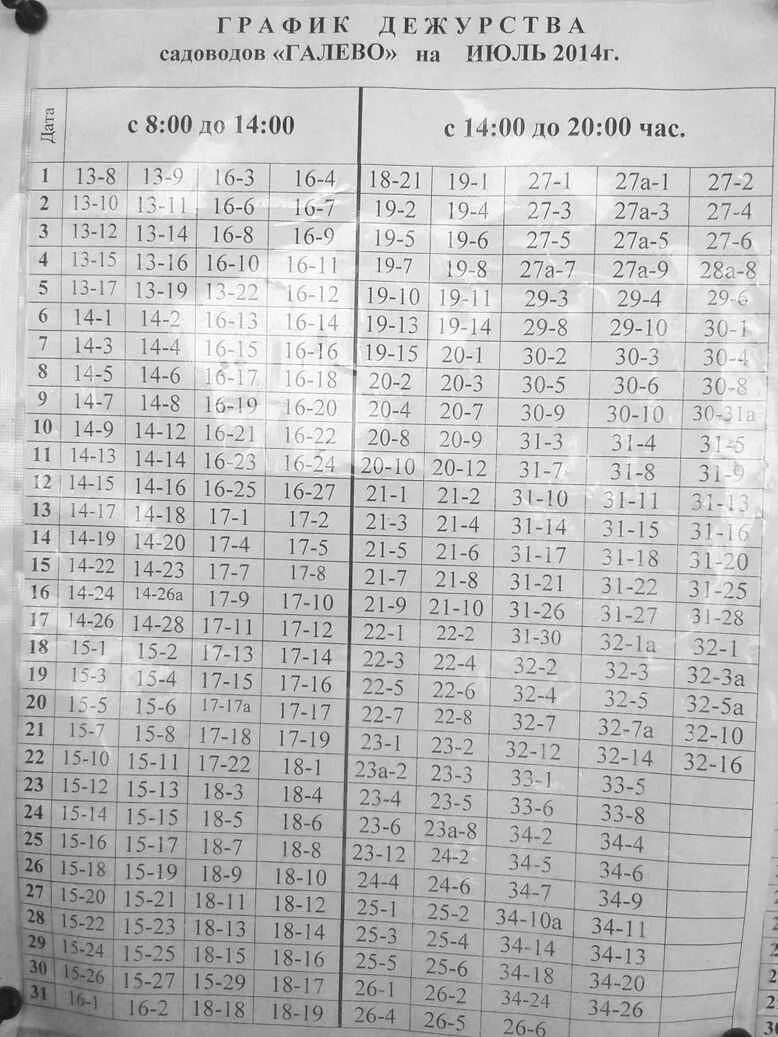 ГРАФИК ДЕЖУРСТВА
садоводов «ГАЛЕВО» на ИЮЛЬ 2014г.
Дата с 8:00 до 14:00 с 14:00 до 20:00 час.
1 13-8 13-9 16-3 16-4 18-21 19-1 27-1 27а-1 27-2
2 13-10 13-11 16-6 16-7 19-2 19-4 27-3 27а-3 27-4
3 13-12 13-14 16-8 16-9 19-5 19-6 27-5 27а-5 27-6
4 13-15 13-16 16-10 16-11 19-7 19-8 27а-7 27а-9 28а-8
5 13-17 13-19 13-22 16-12 19-10 19-11 29-3 29-4 29-6
6 14-1 14-2 16-13 16-14 19-13 19-14 29-8 29-10 30-1
7 14-3 14-4 16-15 16-16 19-15 20-1 30-2 30-3 30-4
8 14-5 14-6 16-17 16-18 20-2 20-3 30-5 30-6 30-8
9 14-7 14-8 16-19 16-20 20-4 20-7 30-9 30-10 30-31а
10 14-9 14-12 16-21 16-22 20-8 20-9 31-3 31-4 31-5
11 14-13 14-14 16-23 16-24 20-10 20-12 31-7 31-8 31-9
12 14-15 14-16 16-25 16-27 21-1 21-2 31-10 31-11 31-13
13 14-17 14-18 17-1 17-2 21-3 21-4 31-14 31-15 31-16
14 14-19 14-20 17-4 17-5 21-5 21-6 31-17 31-18 31-20
15 14-22 14-23 17-7 17-8 21-7 21-8 31-21 31-22 31-25
16 14-24 14-26а 17-9 17-10 21-9 21-10 31-26 31-27 31-28
17 14-26 14-28 17-11 17-12 22-1 22-2 31-30 32-1а 32-1
18 15-1 15-2 17-13 17-14 22-3 22-4 32-2 32-3 32-3а
19 15-3 15-4 17-15 17-16 22-5 22-6 32-4 32-5 32-5а
20 15-5 15-6 17-17а 17-17 22-7 22-8 32-7 32-7а 32-10
21 15-7 15-8 17-18 17-19 23-1 23-2 32-12 32-14 32-16
22 15-10 15-11 17-22 18-1 23а-2 23-3 33-1 33-5
23 15-12 15-13 18-3 18-4 23-4 23-5 33-6 33-8
24 15-14 15-15 18-5 18-6 23-6 23а-8 34-2 34-4
25 15-16 15-17 18-7 18-8 23-12 24-2 34-5 34-6
26 15-18 15-19 18-9 18-10 24-4 24-6 34-7 34-9
27 15-20 15-21 18-11 18-12 25-1 25-2 34-10а 34-11
28 15-22 15-23 18-13 18-14 25-3 25-4 34-14 34-13
29 15-24 15-25 18-15 18-16 25-5 25-6 34-18 34-20
30 15-26 15-27 15-29 18-17 26-1 26-2 34-24 34-26
31 16-1 16-2 18-18 18-19 26-4 26-5 26-6